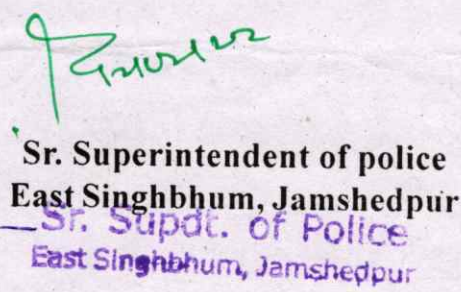 Sr. Superintendent of police
East Singhbhum, Jamshedpur
Sr. Supdt. of Police
East Singhbhum, Jamshedpur